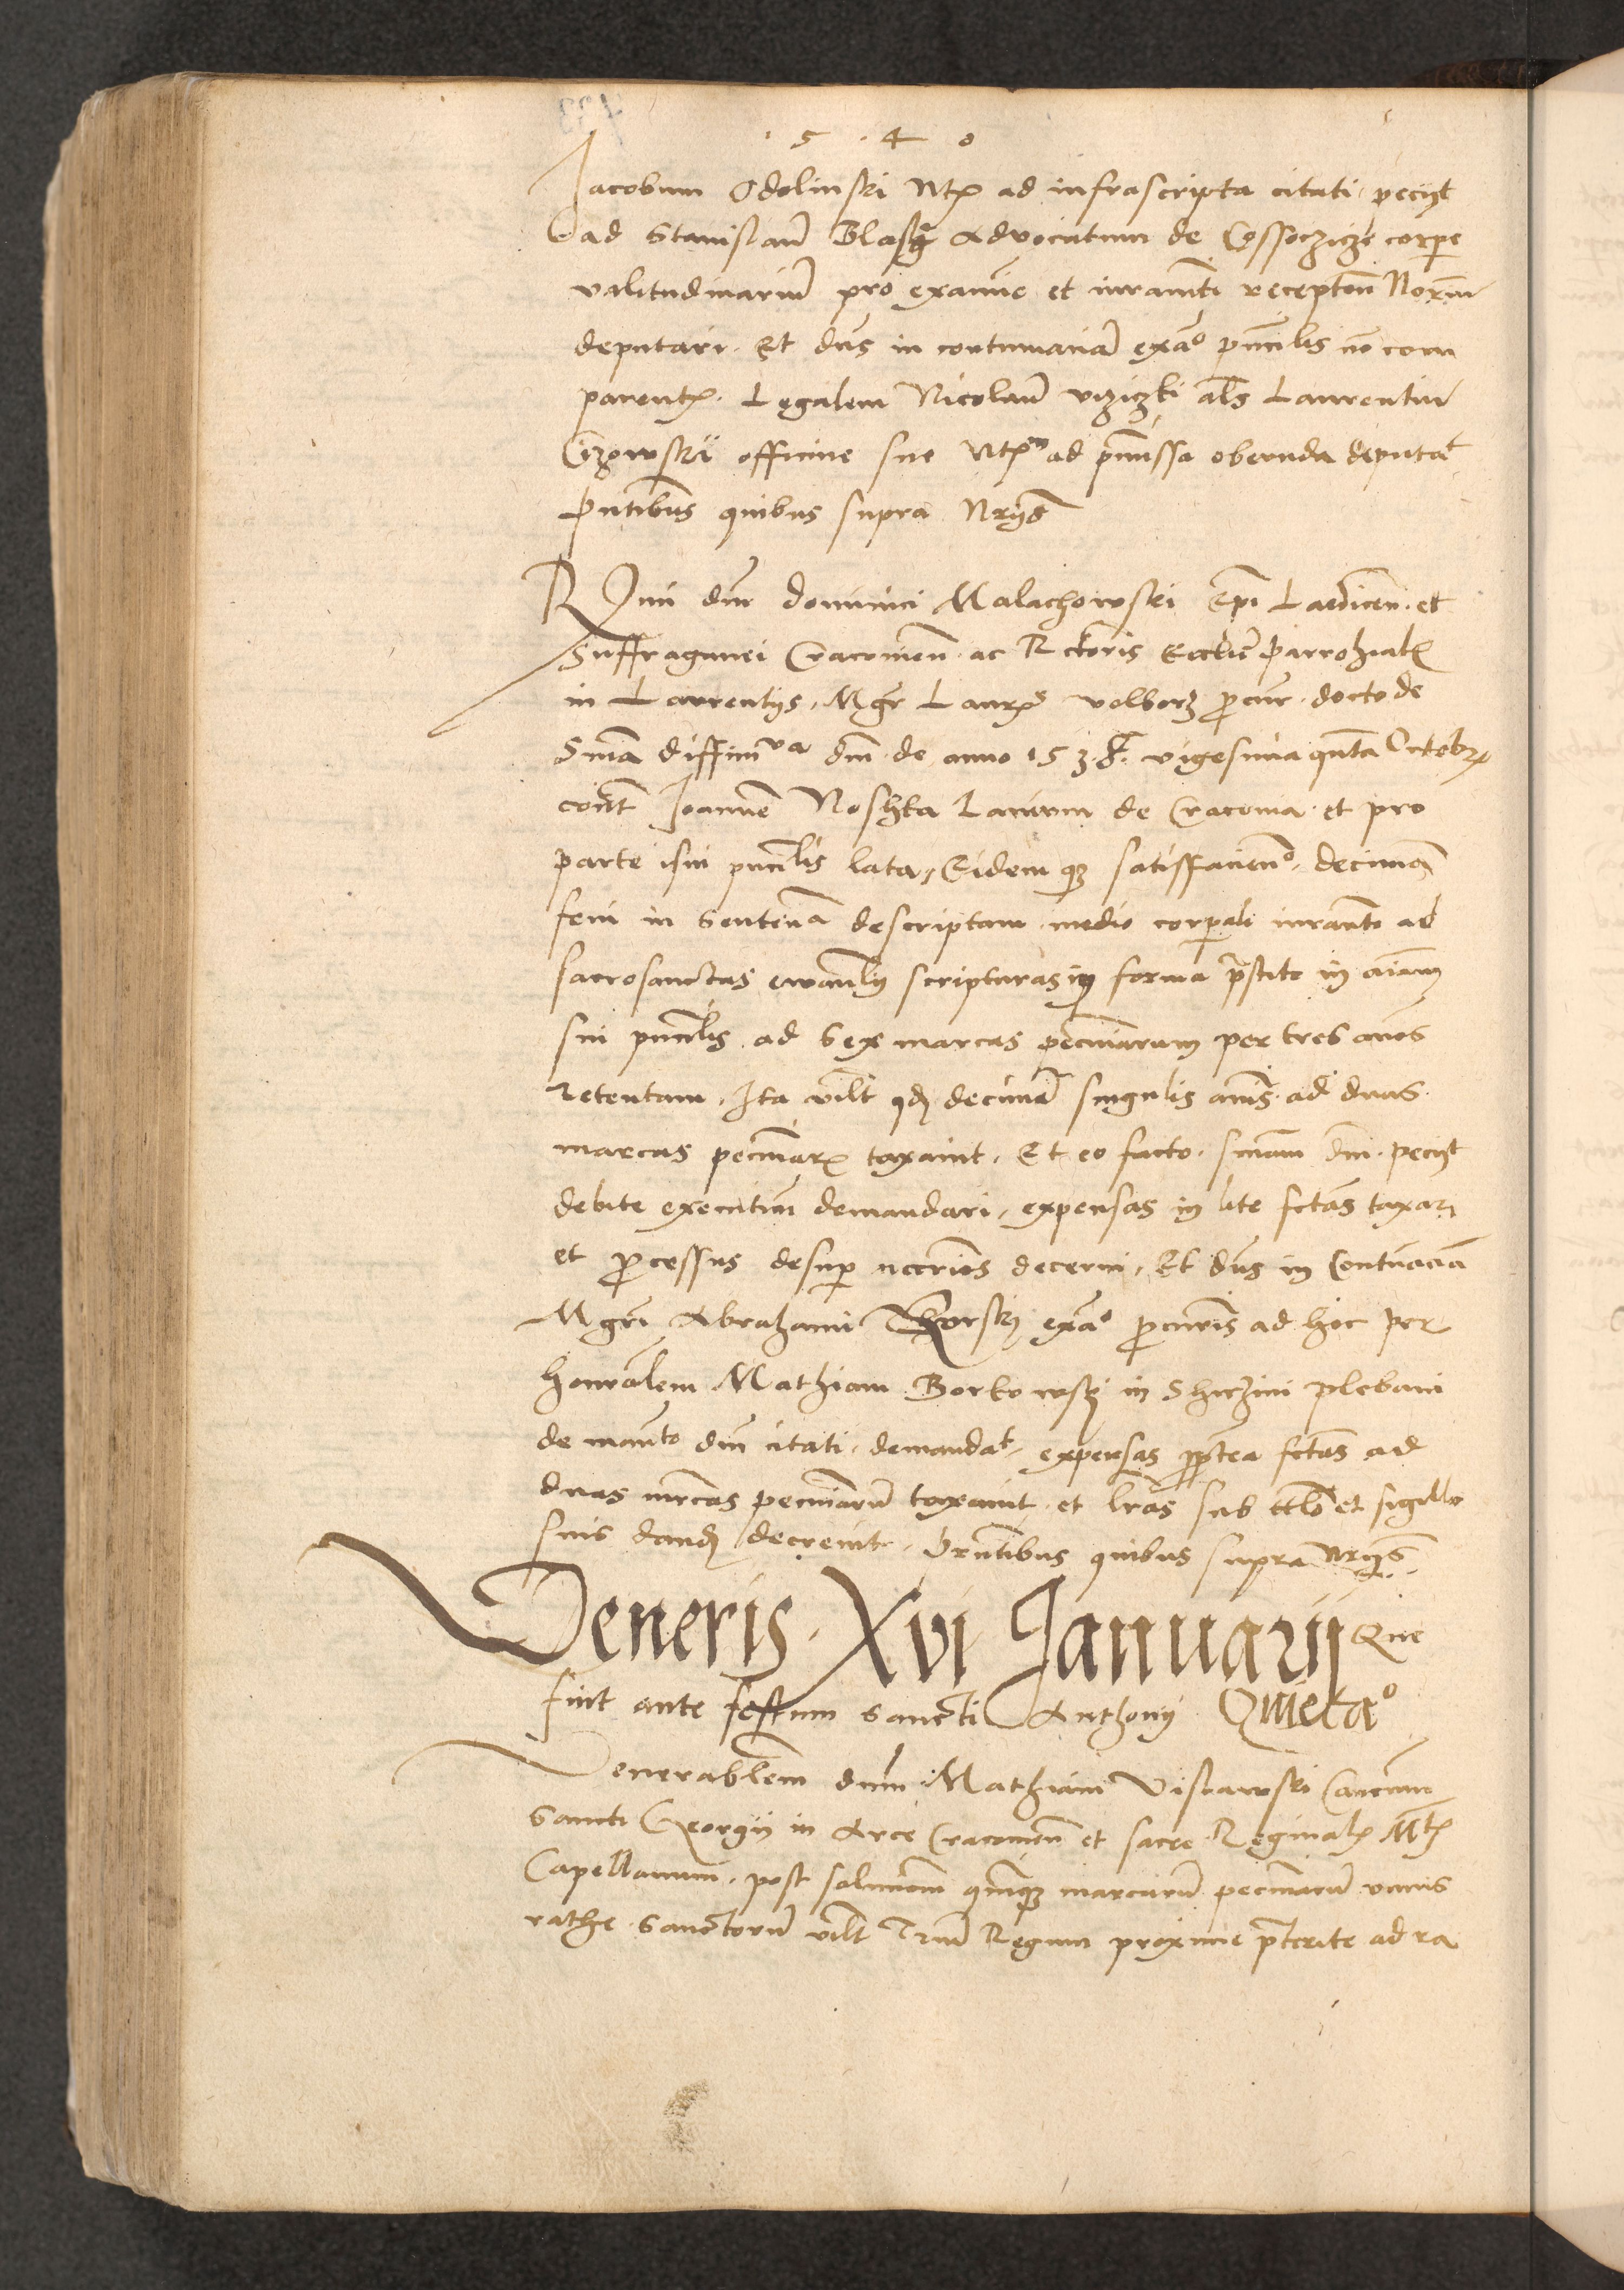 · 5 · 4 0
Jacobum Odolinski Ntr̃ ad infrascripta citati, peciit
ad Stanislaũ Advocatum de Cossoczicze corpe
valitudinariũ pro examie et iuramti receptoñ Norm
deputari. Et dñs in contumaciã exãº prinćlis nõ com
parentꝭ. Legalem Nicolaũ als Laurentiũ
officine sue Ntr̃m ad pmissa obeunda deputat
Pntibus quibus supra Nrijs
Rmi dñi dominici Malachowski Epi Laodiceñ. et
Suffraganei Cracovieñ. ac Rctoris Ecclie Parrohialꝭ
in Mgr Laurs volborz procur. docto de
Snia diffinitiva dñi de anno 153.8. vigesima qnta Octobrꝭ
cont Joannẽ Noskta Laicum de Cracovia et pro
parte sui prinćlis lata, Eidem qz satisfacienº. decimã
feni in Sentenã descriptam medio corporali iuranto ad
sacrosanctas ewanlij scripturas in forma prestito in aiam
sui prinćlis. ad Sex marcas pecuniarum per tres annos
retentam. Ita vilt qd decimã singulis annis ad duas
marcas pecuniarꝭ taxavit. Et eo facto. snian dñi. peciit
debite executioni demandari, expensas in lite fctas taxari
et processus desup necrios decerni, Et dñs in Contuaciã
Mgri Abrahami exaº procuris ad hoc per
honorãlem Mathiam Borkowski in plebani
de manto dñi citati, demandat, expensas propterea fctas ad
duas mrcas pecuniarũ taxavit. et lras sub ttlo et sigillo
suis dand decrevit. Prntibus quibus supra Nrijs
Veneris. Xvi Januarij Que
fuit ante festum Sancti Anthonij Quietaº
Venerablem dnm Mathiam Vislawski Canonicum
Sancti Georgij in Arce Cracovieñ et sacre Reginalꝭ Mtꝭ
Capellanum, post solucionem quinqz marcarũ pecuniarũ unius
rathe Sanctorũ vilt Triũ Regum proxime preterite ad ra